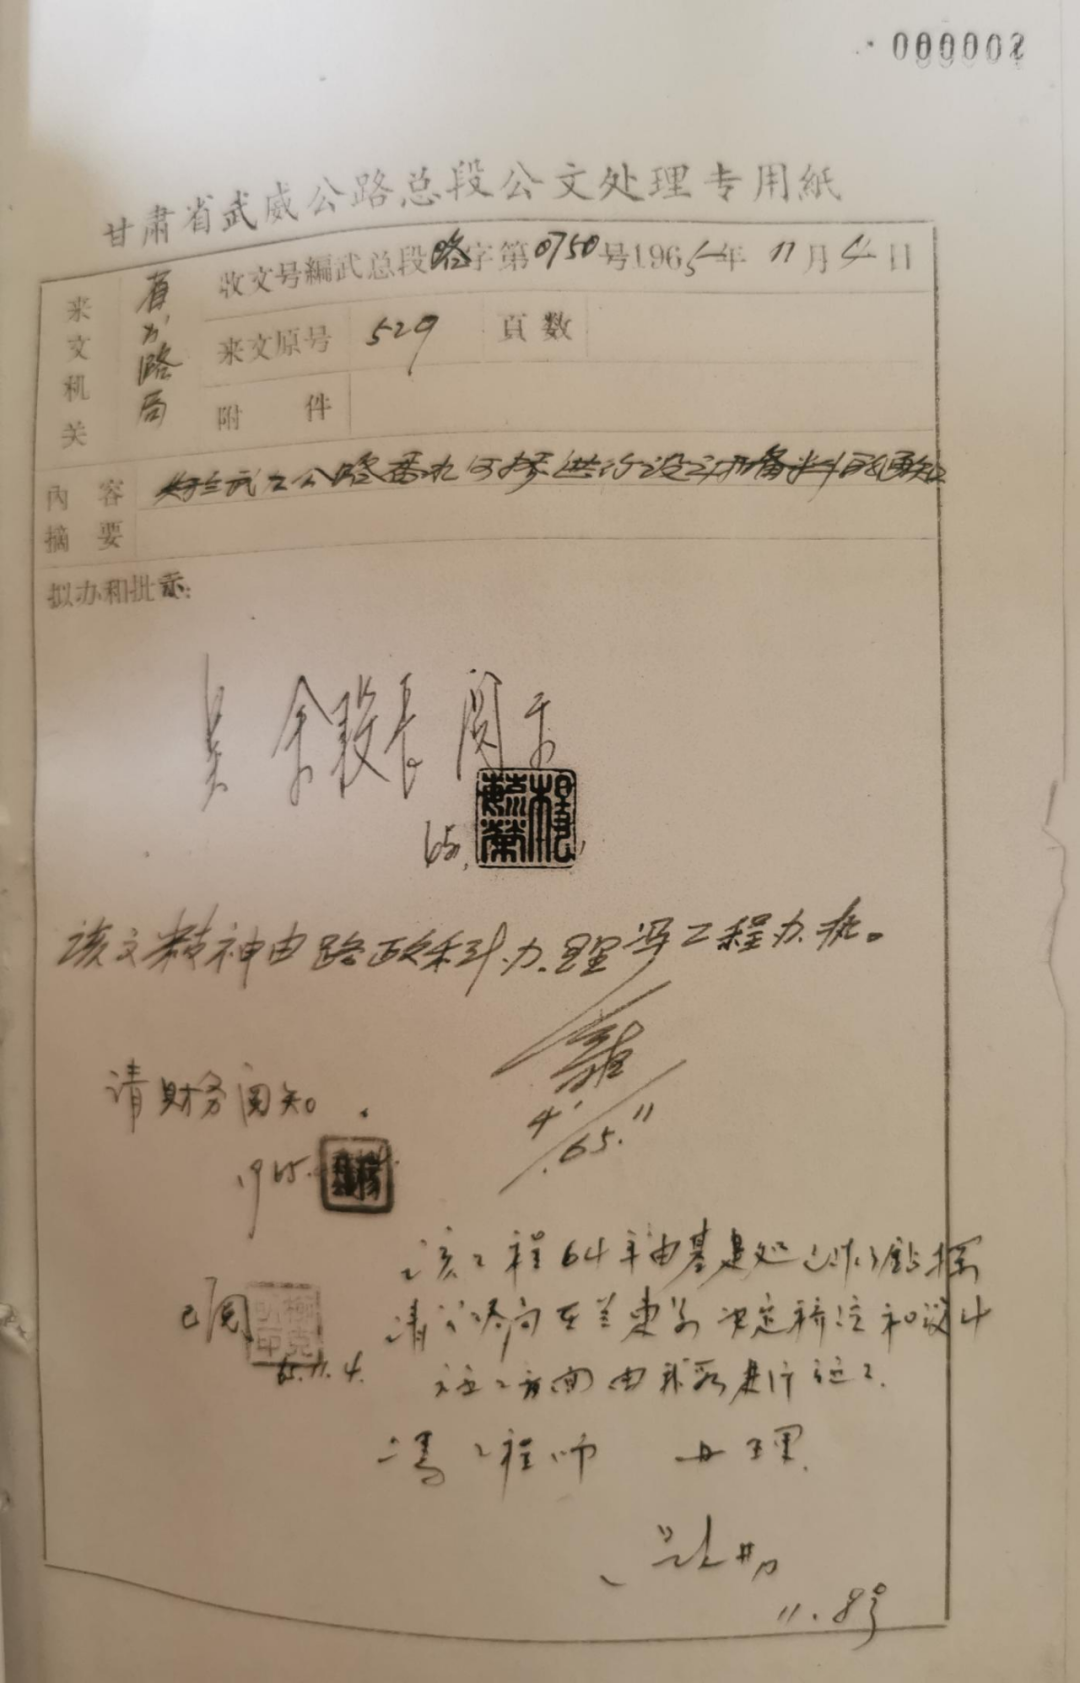 000002
甘肃省武威公路总段公文处理专用紙
来文机关 省公路局
收文号編武总段路字第0750号1965年11月4日
来文原号 529 頁数
附件
內容摘要 公路 河桥进行设计和备料的通知
拟办和批示:
吴余段长阅示
65.
该文精神由路政科办理冯工程办我。
4/11
65.
请财务阅知.
1965.
已阅
65.11.4.
该工程64年由基建处已作了钻探
请公路局在兰 决定桥位和设计
施工方面由我段进行施工.
冯工程师 办理.
11.8号